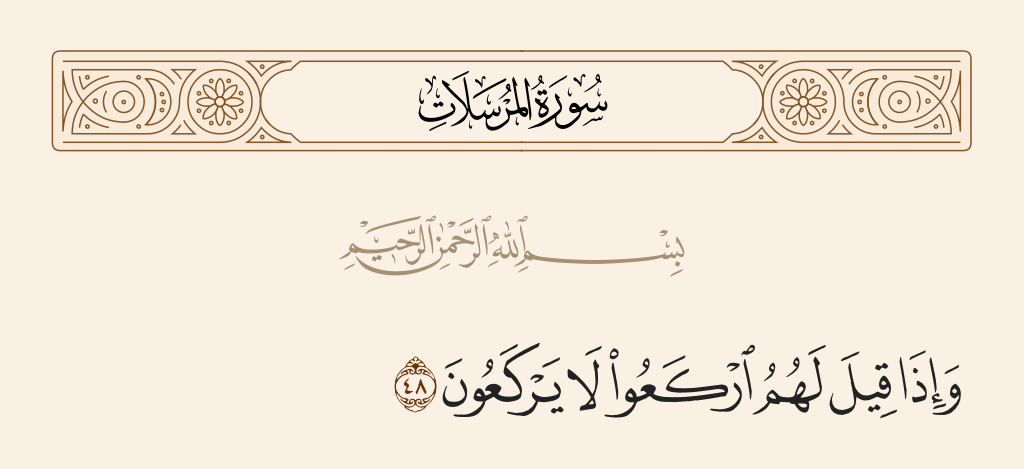 سُورَةُ المُرْسَلَاتِ
بِسْمِ ٱللَّهِ ٱلرَّحْمَٰنِ ٱلرَّحِيمِ
وَإِذَا قِيلَ لَهُمُ ٱرْكَعُوا۟ لَا يَرْكَعُونَ ٤٨